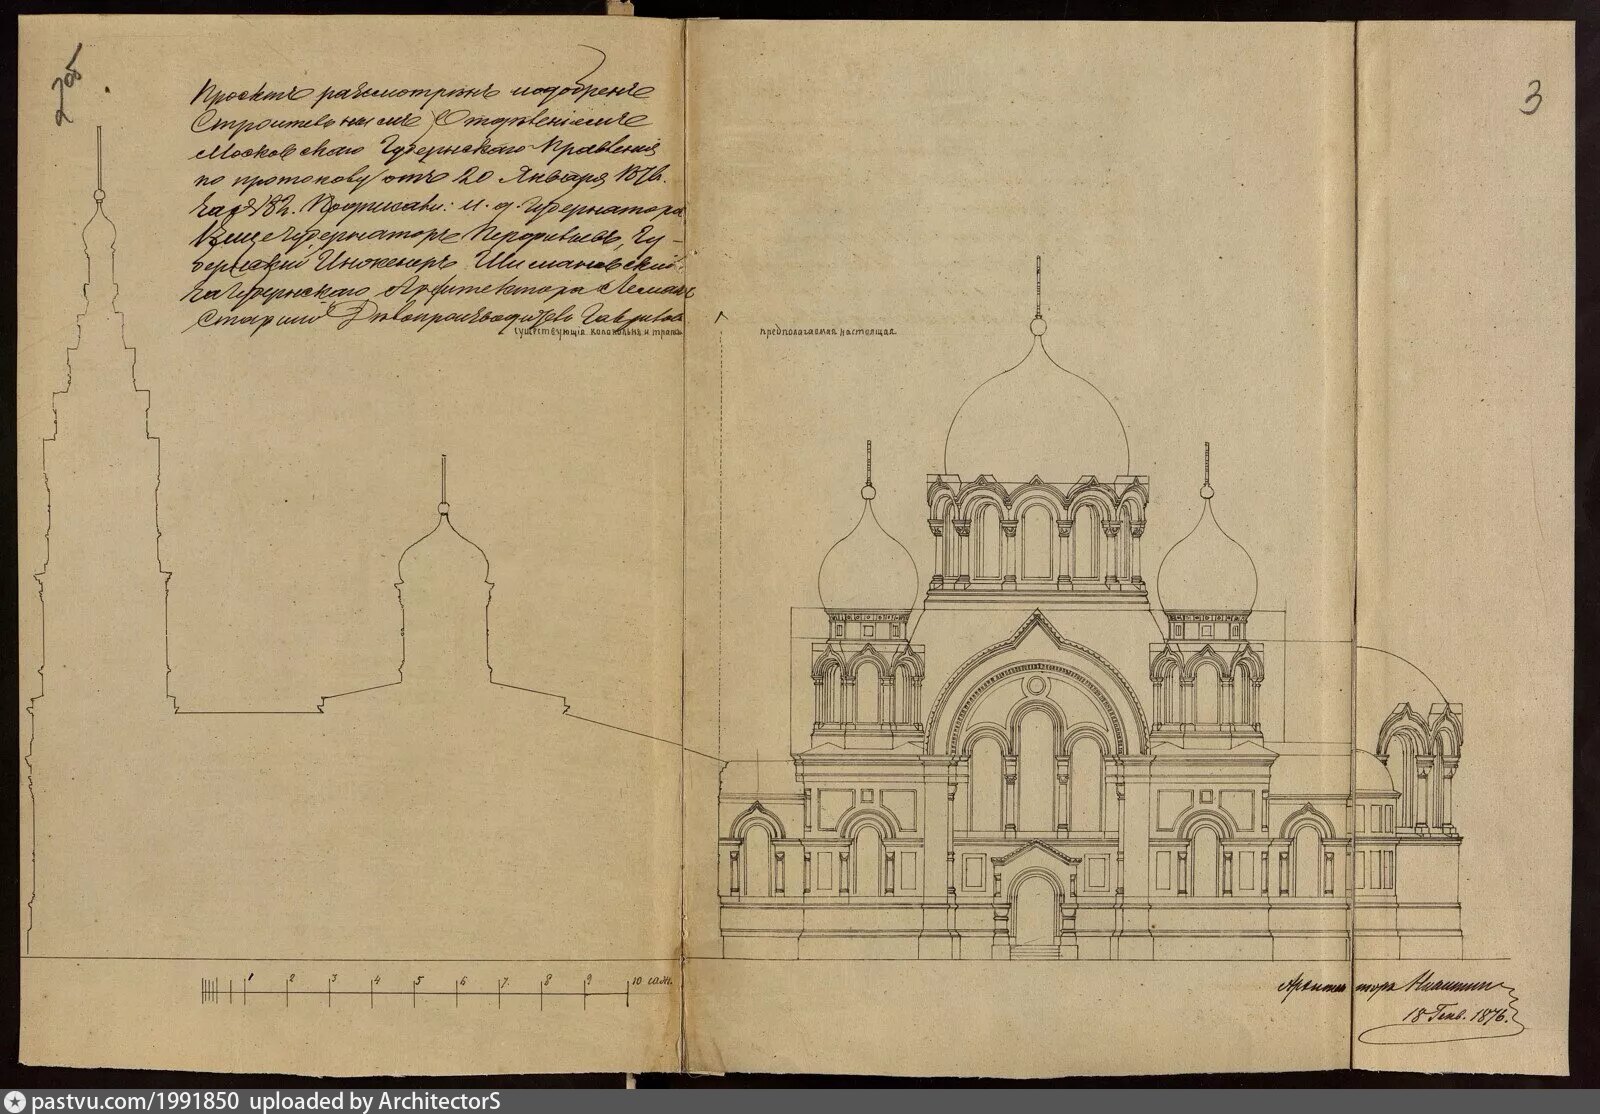 2 об
3
Проектъ разсмотрѣнъ и одобренъ
Строительнымъ Отдѣленіемъ
Московскаго Губернскаго Правленія
по протоколу отъ 20 Января 1876 г.
за № 182. Подписали: и. д. Губернатора
Вице Губернаторъ Перфильевъ, Гу-
бернскій Инженеръ Шимановскій
за Губернскаго Архитектора
Старшій Дѣлопроизводитель Гаврилов
существующія колокольня и трапез.
предполагаемая настоящая.
1 2 3 4 5 6 7 8 9 10 саж.
Архитекторъ Никитин
18 Генв. 1876.
pastvu.com/1991850 uploaded by ArchitectorS